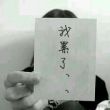 我累了、、